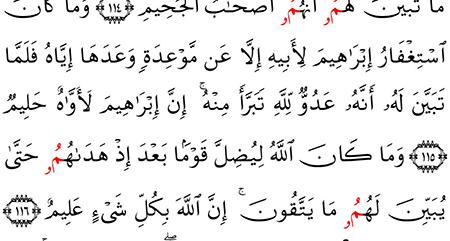 مَا تَبَيَّنَ لَهُمُۥ أَنَّهُمُۥ أَصْحَٰبُ الْجَحِيمِ ۝١١٤ وَمَا كَانَ
اَسْتِغْفَارُ إِبْرَاهِيمَ لِأَبِيهِ إِلَّا عَن مَّوْعِدَةٍ وَعَدَهَا إِيَّاهُ فَلَمَّا
تَبَيَّنَ لَهُۥ أَنَّهُۥ عَدُوٌّ لِّلَّهِ تَبَرَّأَ مِنْهُ ۚ إِنَّ إِبْرَاهِيمَ لَأَوَّاهٌ حَلِيمٌ
۝١١٥ وَمَا كَانَ اَللَّهُ لِيُضِلَّ قَوْمًۢا بَعْدَ إِذْ هَدَىٰهُمُۥ حَتَّىٰ
يُبَيِّنَ لَهُمُۥ مَا يَتَّقُونَ ۚ إِنَّ اَللَّهَ بِكُلِّ شَيْءٍ عَلِيمٌ ۝١١٦